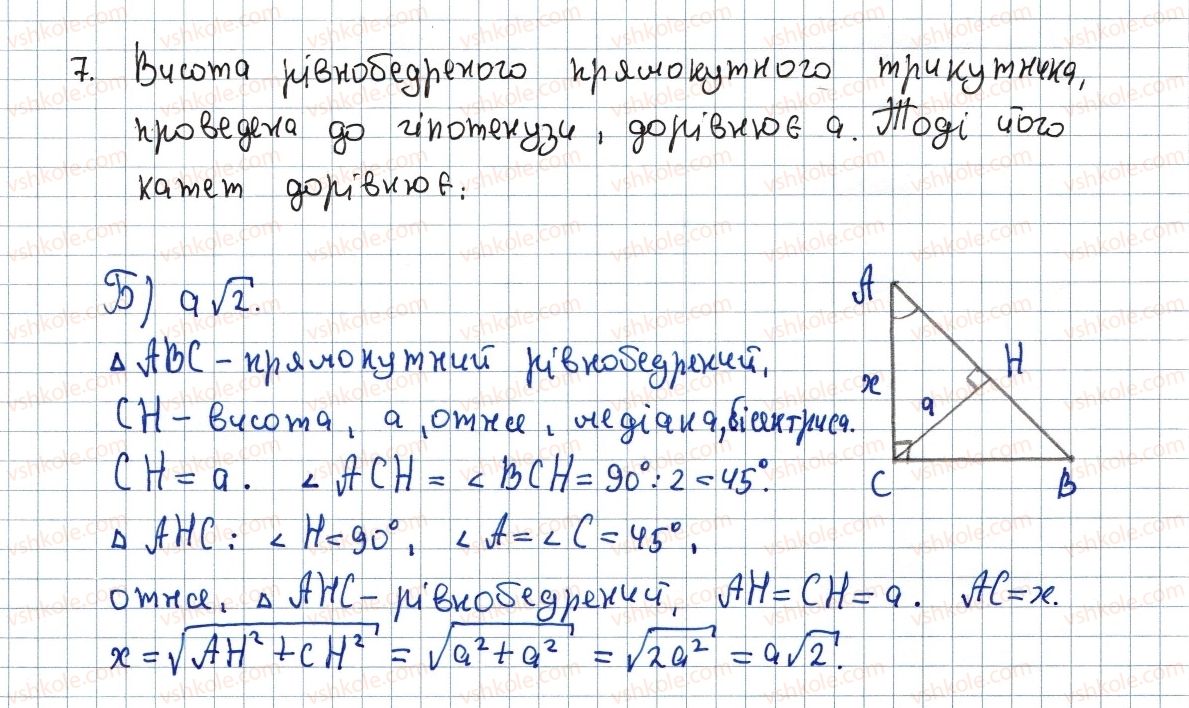 7. Висота рівнобедреного прямокутного трикутника,
проведена до гіпотенузи, дорівнює a. Тоді його
катет дорівнює:
Б) a√2.
△ ABC – прямокутний рівнобедрений,
CH – висота, а, отже, медіана, бісектриса.
CH = a. ∠ ACH = ∠ BCH = 90° : 2 = 45°.
△ AHC: ∠ H = 90°, ∠ A = ∠ C = 45°,
отже, △ AHC – рівнобедрений, AH = CH = a. AC = x.
x = √(AH² + CH²) = √(a² + a²) = √(2a²) = a√2.
A
H
x
a
C
B
vshkole.com